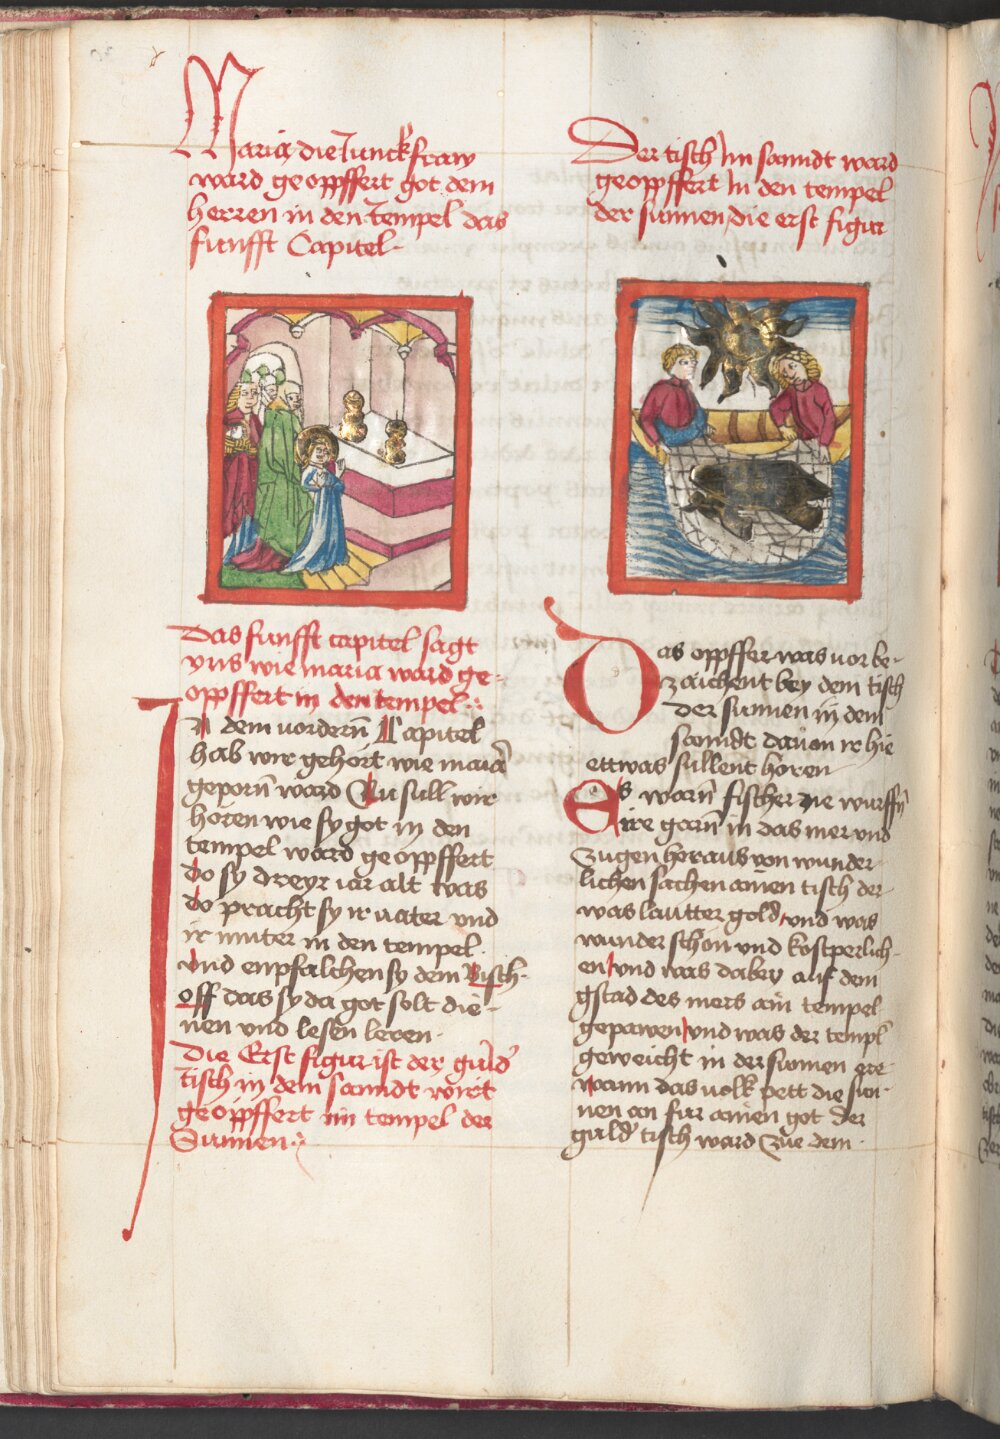 Maria die Junckfraw
ward geopffert got dem
herren in den Tempel das
funfft Capitel
Das funfft capitel sagt
vns wie maria ward ge-
opffert in den tempel
In dem vordern Capitel
hab wir gehort wie maria
geporn ward Nu sull wir
horen wie sy got in den
tempel ward geopffert
do sy dreyr iar alt was
do pracht sy ir vater vnd
ir muter in den tempel
vnd enpfalchen sy dem Bisch-
off das sy da got solt die-
nen vnd lesen leren
Die Erst figur ist der guld
tisch in dem sanndt wirt
geopffert im tempel der
Sunnen
Der tisch Im sanndt ward
geopffert In den tempel
der sunnen die erst figur
Das opffer was vor be-
zaichent bey dem tisch
Der sunnen in dem
sanndt dauon ir hie
ettwas sullent horen
Es warn fischer die wurffn
ire garn in das mer vnd
zugen heraus von wunder-
lichen sachen ainen tisch der
was lautter gold vnd was
wunder schon vnd kostperlich-
en vnd was dabey auf dem
gstad des mers ain tempel
gepawen vnd was der templ
geweicht in der sunnen ere
wann das volk pett die sun-
nen an fur ainen got der
guld tisch ward zue dem